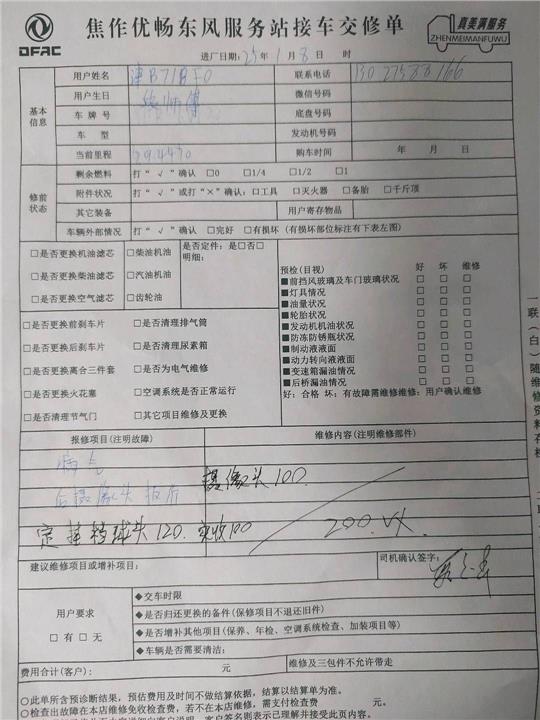 DFAC
焦作优畅东风服务站接车交修单
真美满服务
ZHENMEIMANFUWU
进厂日期：25年1月8日 时
基本信息
用户姓名 津B71BF0 联系电话
用户生日 师傅 微信号码
车牌号 底盘号码
车型 发动机号码
当前里程 购车时间 年 月 日
修前状态
剩余燃料 打“√”确认 □0 □1/4 □1/2 □1
附件状况 打“√”或打“×”确认：□工具 □灭火器 □备胎 □千斤顶
其它装备 用户寄存物品
车辆外部情况 打“√”确认 □完好 □有损坏（有损坏部位标注有下表左图）
□是否更换机油滤芯 □柴油机油 是否定件：是□否□
明细：
□是否更换柴油滤芯 □汽油机油
□是否更换空气滤芯 □齿轮油
□是否更换前刹车片 □是否清理排气筒
□是否更换后刹车片 □是否清理尿素箱
□是否更换离合三件套 □是否为电气维修
□是否更换火花塞 □空调系统是否正常运行
□是否清理节气门 □其它项目维修及更换
预检(目视) 好 坏 维修
■前挡风玻璃及车门玻璃状况 □ □ □
■灯具情况 □ □ □
■油量状况 □ □ □
■轮胎状况 □ □ □
■发动机机油状况 □ □ □
■防冻防锈瓶状况 □ □ □
■制动液液面 □ □ □
■动力转向液液面 □ □ □
■变速箱漏油情况 □ □ □
■后桥漏油情况 □ □ □
好：合格 坏：有故障需维修维修：用户确认维修
报修项目(注明故障) 维修内容(注明维修部件)
后摄像头报府
摄像头100.
定挂档球头120.实收100 200.
建议维修项目或增补项目：
司机确认签字：
用户要求
□有 □无
◆交车时限
◆是否归还更换的备件(保修项目不退还旧件)
◆是否增补其他项目(保养、年检、空调系统检查、加装项目等)
◆车辆是否需要清洁：
费用合计(客户)： 元 维修及三包件不允许带走
○此单所含预诊断结果，预估费用及时间不做结算依据，结算以结算单为准。
○检查出故障在本店维修免收检查费，若不在本店维修，需支付检查费 元。
客户签名则表示已理解并接受此页内容。
一联(白)随维修资料存档